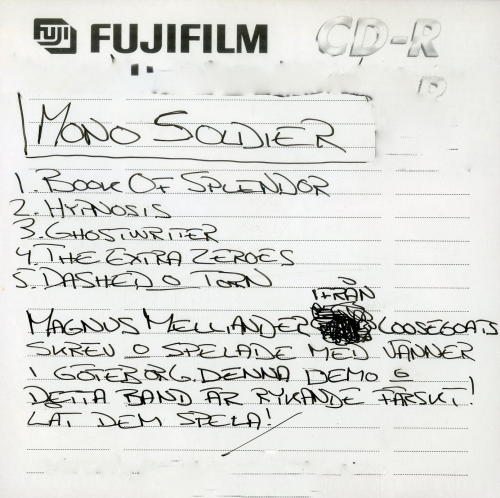 FUJI FUJIFILM CD-R
MONO SOLDIER
1. BOOK OF SPLENDOR
2. HYPNOSIS
3. GHOSTWRITER
4. THE EXTRA ZEROES
5. DASHED O TORN
IFRÅN
MAGNUS MELLIANDER LOOSEGOATS
SKREV O SPELADE MED VÄNNER
I GÖTEBORG. DENNA DEMO O
DETTA BAND ÄR RYKANDE FÄRSKT!
LÅT DEM SPELA!